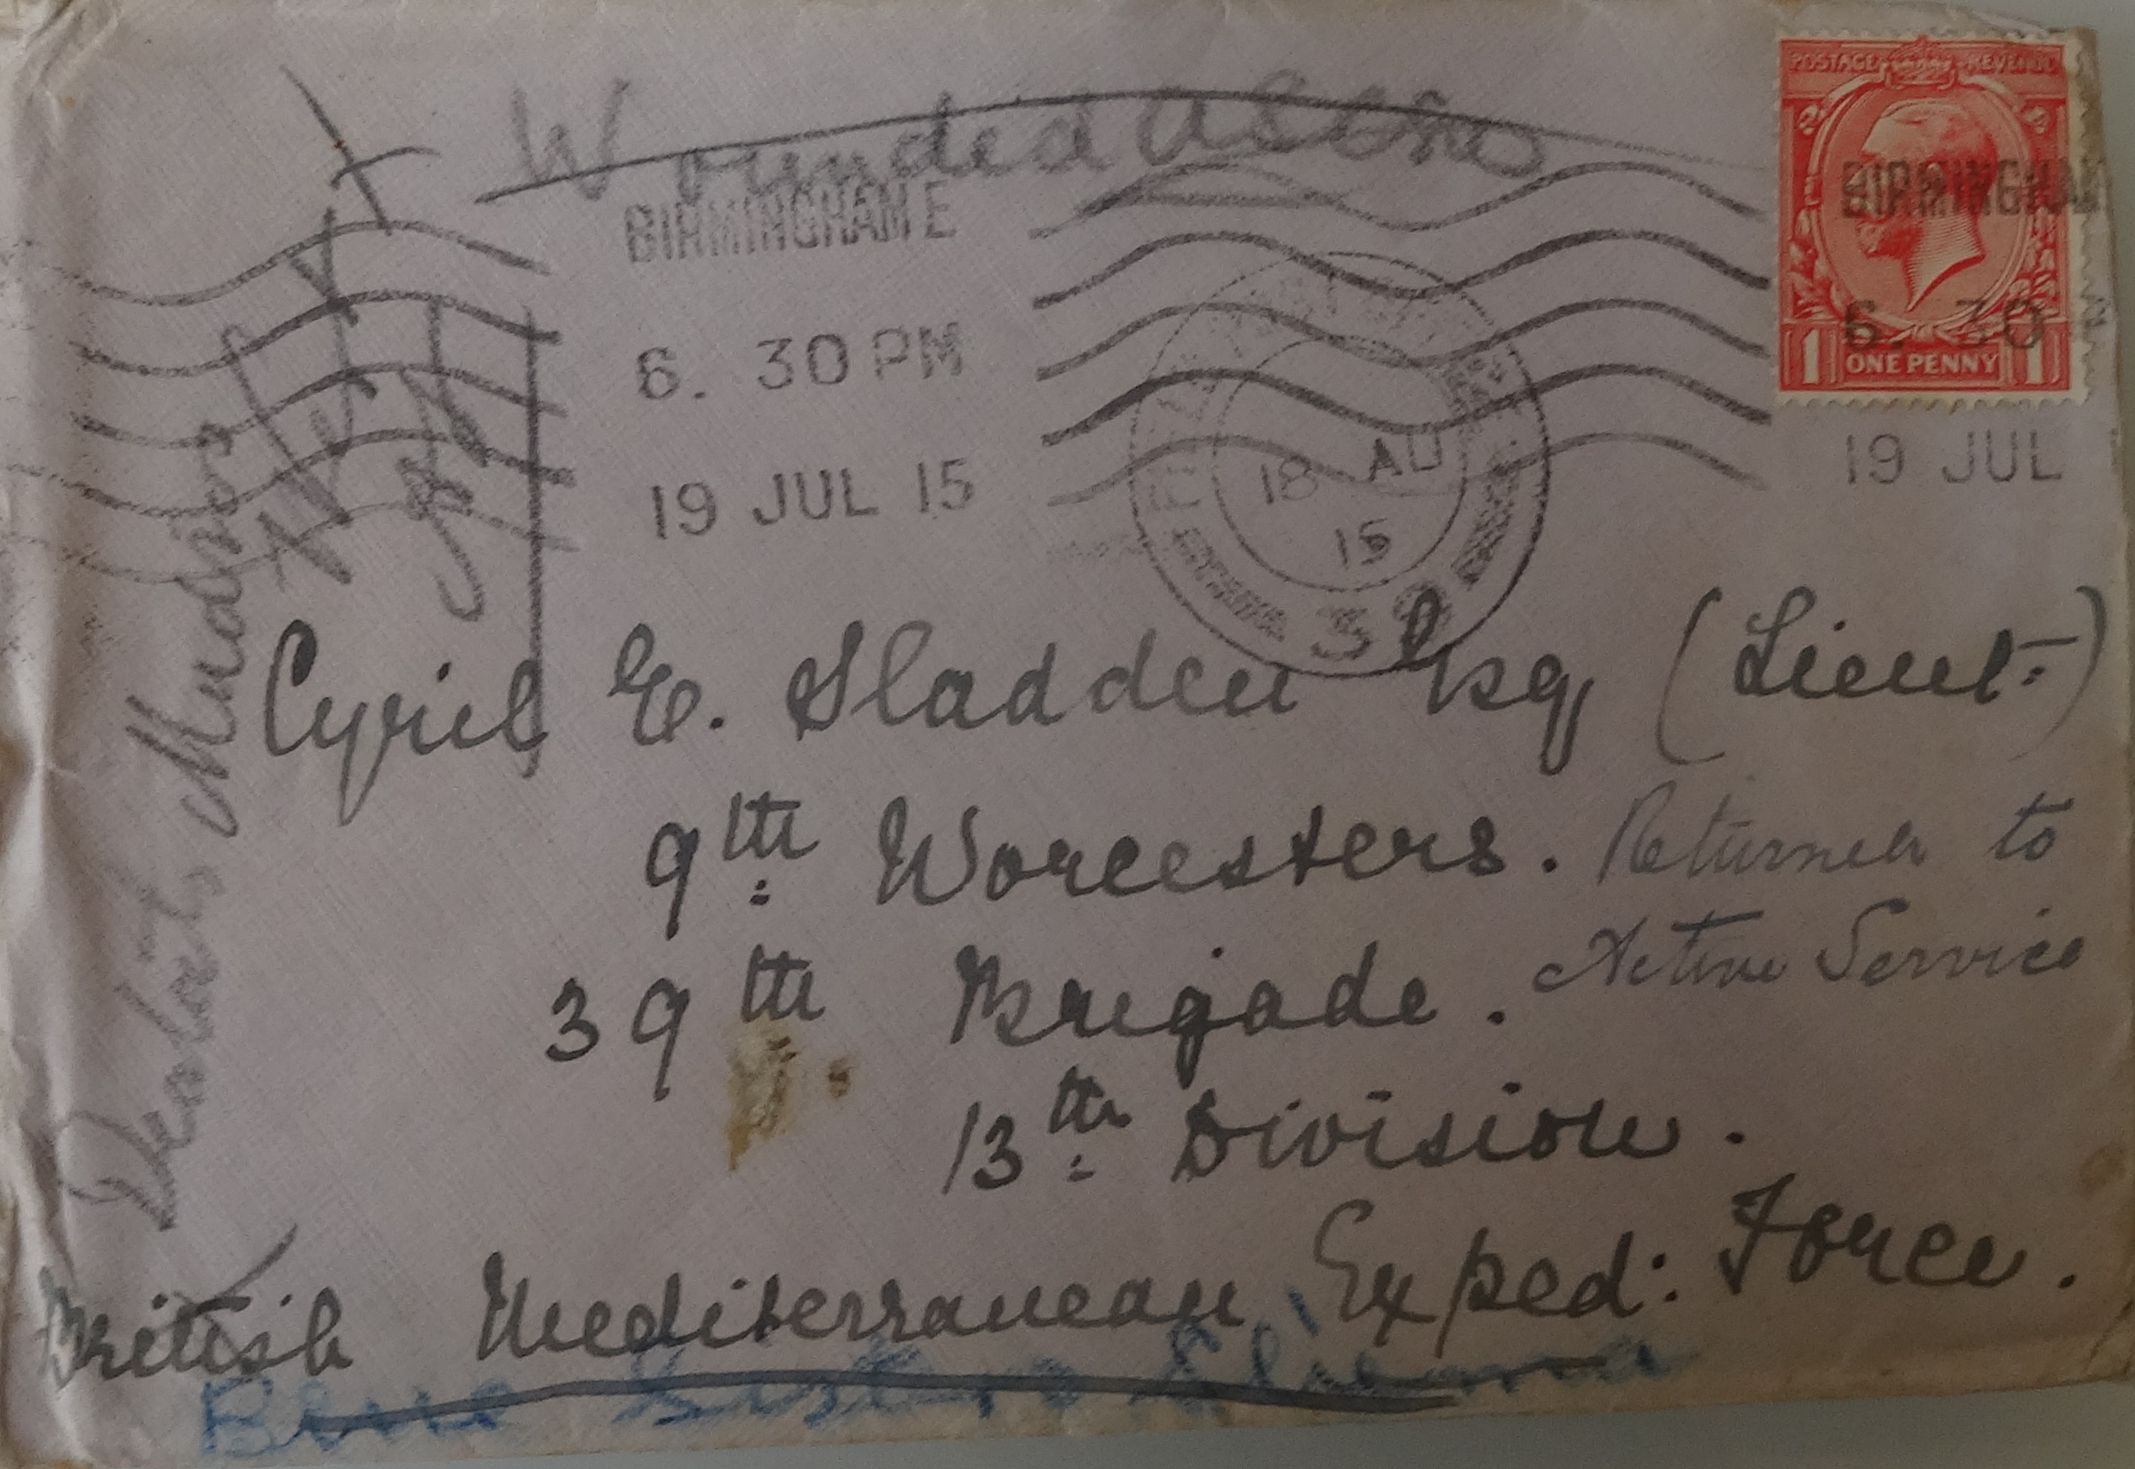 Wounded
POSTAGE REVENUE
BIRMINGHAM E
BIRMINGHAM
6. 30 PM
6. 30
1 ONE PENNY 1
19 JUL 15
19 JUL
18 AU
15
Cyril E. Sladden Esq (Lieut:)
9th Worcesters.
Returned to
Active Service
39th Brigade.
13th Division.
British Mediterranean Exped: Force.
Blue Sisters Sliema
Mudros